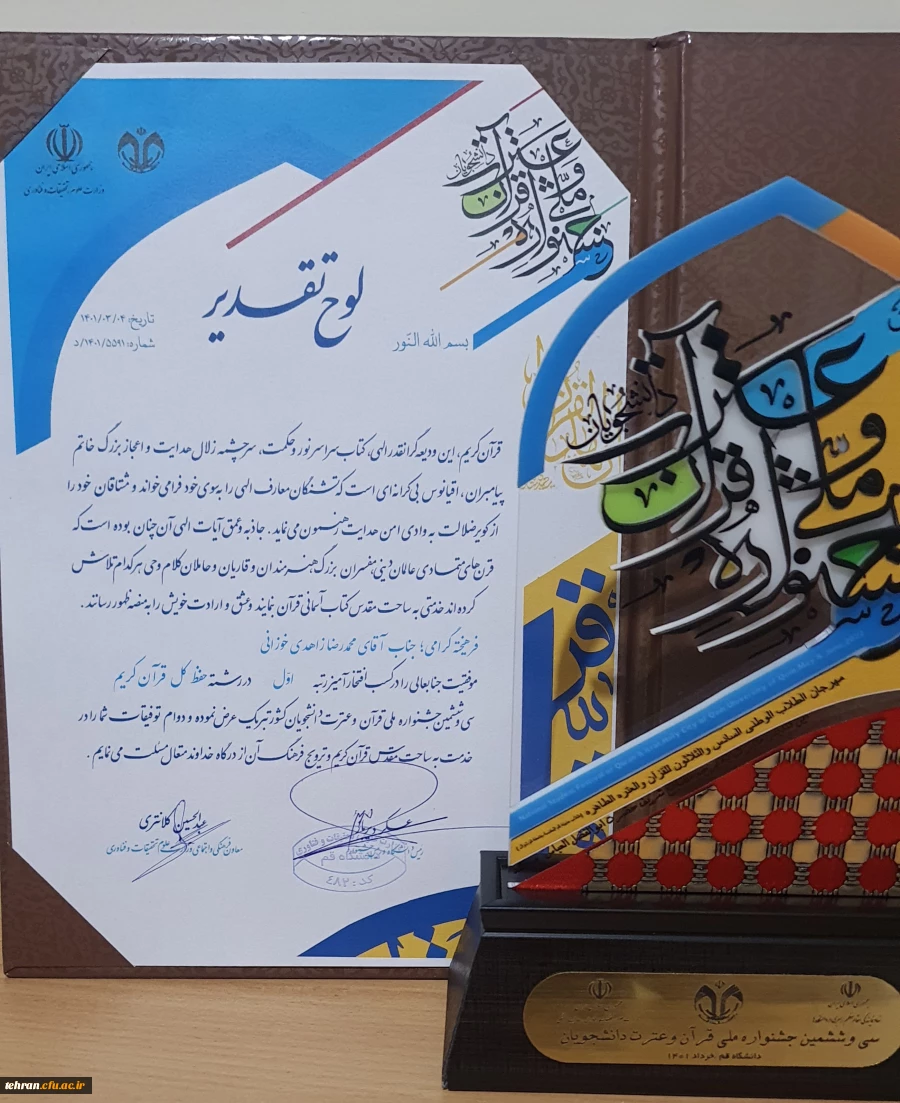 جمهوری اسلامی ایران
وزارت علوم، تحقیقات و فناوری
جشنواره ملی قرآن و عترت دانشجویان
لوح تقدیر
تاریخ: ۱۴۰۱/۰۳/۰۴
شماره: ۱۴۰۱/۵۵۹۱/د
بسم الله النّور
قرآن کریم، این ودیعه گرانقدر الهی، کتاب سراسر نور و حکمت، سرچشمه زلال هدایت و اعجاز بزرگ خاتم
پیامبران، اقیانوس بی‌کرانه‌ای است که تشنگان معارف الهی را به‌سوی خود فرامی‌خواند و مشتاقان خود را
از کویر ضلالت به وادی امن هدایت رهنمون می‌نماید. جاذبه و عمق آیات الهی آن چنان بوده است که
قرن‌های متمادی عالمان دینی، مفسران بزرگ، هنرمندان و قاریان و حاملان کلام وحی هرکدام تلاش
کرده‌اند خدمتی به ساحت مقدس کتاب آسمانی قرآن نمایند و عشق و ارادت خویش را به منصه ظهور رسانند.
فرهیخته گرامی؛ جناب آقای محمدرضا زاهدی خوزانی
موفقیت جنابعالی را در کسب افتخارآمیز رتبه اول در رشته حفظ کل قرآن کریم
سی و ششمین جشنواره ملی قرآن و عترت دانشجویان کشور تبریک عرض نموده و دوام توفیقات شما را در
خدمت به ساحت مقدس قرآن کریم و ترویج فرهنگ آن از درگاه خداوند متعال مسئلت می‌نمایم.
عبدالحسین کلانتری
معاون فرهنگی و اجتماعی وزارت علوم، تحقیقات و فناوری
دانشگاه قم
کد: ۴۸۲
جشنواره ملی قرآن و عترت دانشجویان
مهرجان الطلاب الوطني السادس والثلاثون للقرآن والعترة الطاهرة
جمهوری اسلامی ایران
سی و ششمین جشنواره ملی قرآن و عترت دانشجویان
دانشگاه قم /خرداد ۱۴۰۱
tehran.cfu.ac.ir